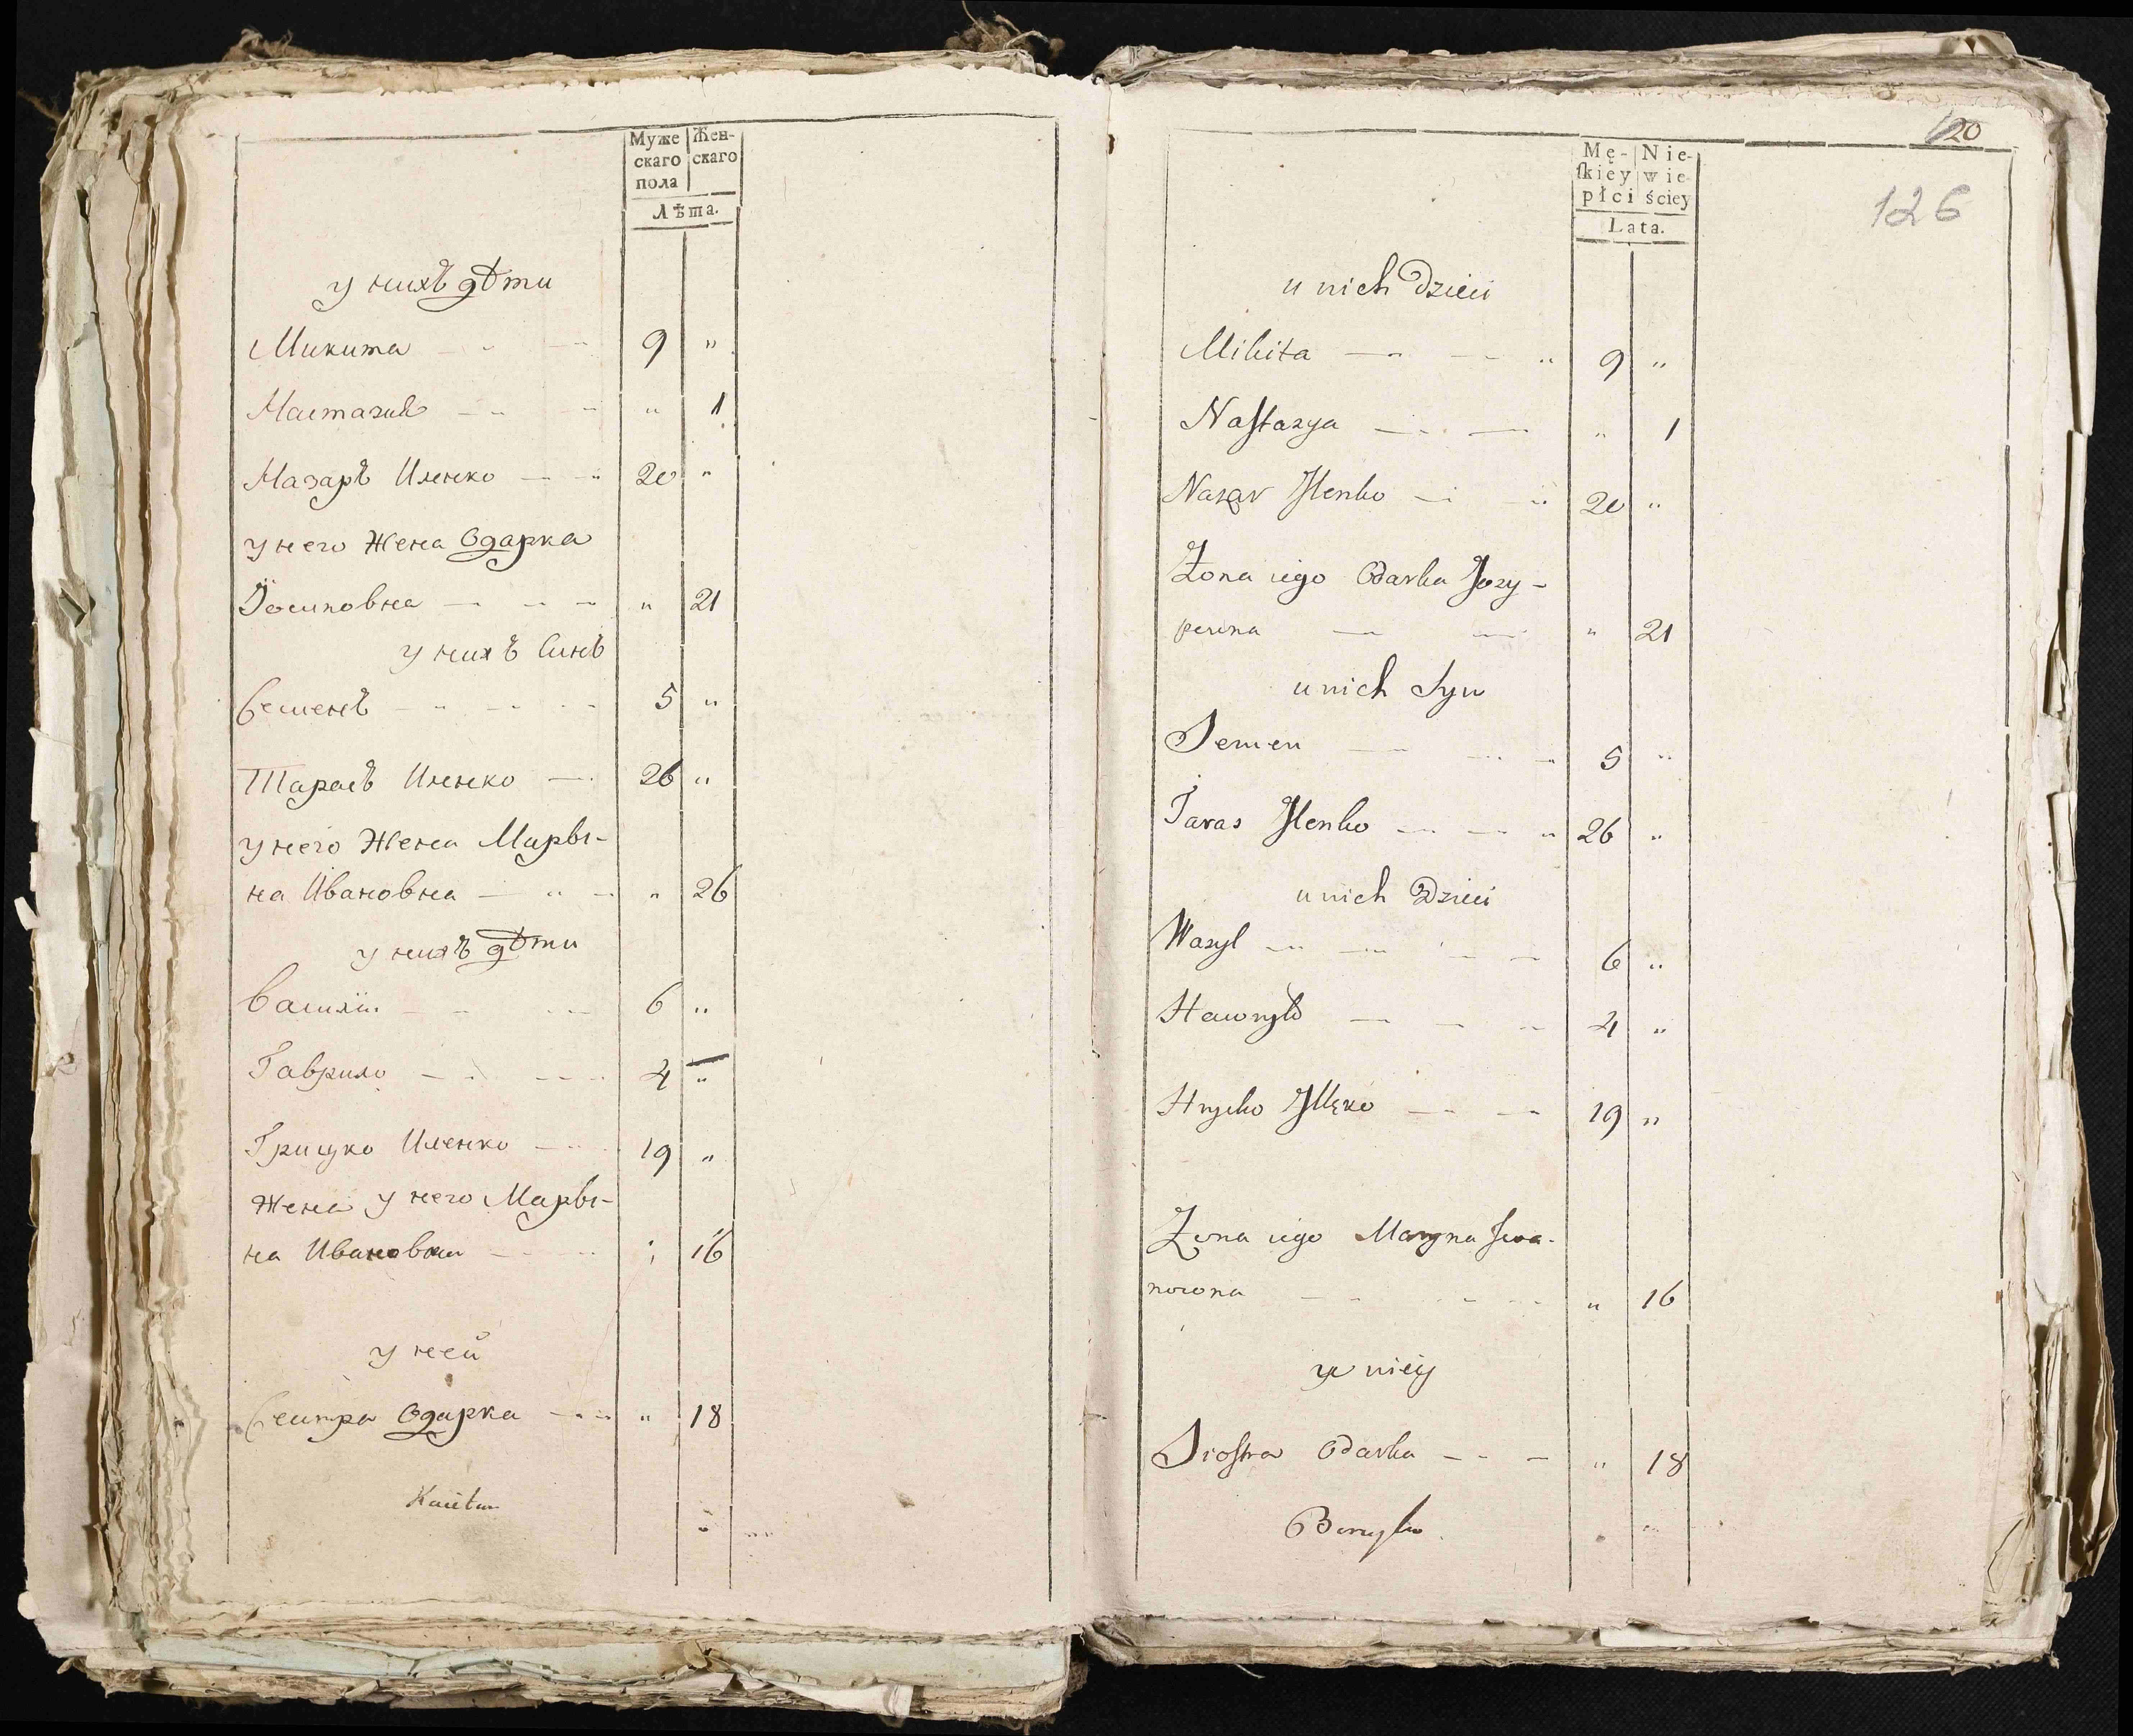 Муже
скаго
пола
Жен-
скаго
Лѣта.
у нихъ дѣти
Микита 9 "
Настазия " 1
Назаръ Иленко 20 "
у него Жена Одарка
Іосиповна " 21
у нихъ Синъ
Семенъ 5 "
Тарасъ Иленко 26 "
у него Жена Мары-
на Ивановна " 26
у нихъ дѣти
Василій 6 "
Гаврило 4 "
Грицко Иленко 19 "
Жена у него Мары-
на Ивановна " 16
у ней
Сестра Одарка " 18
120
126
Mę-
skiey
płci
Nie-
wie
ściey
Lata.
u nich Dzieci
Mikita 9 "
Nastazya " 1
Nazar Jlenko 20 "
Żona iego Odarka Jozy-
powna " 21
u nich Syn
Semen 5 "
Taras Jlenko 26 "
u nich Dzieci
Wasyl 6 "
Hawryło 4 "
Hrycko 19 "
Żona iego Maryna Jwa-
nowna " 16
u niey
Siostra Odarka " 18